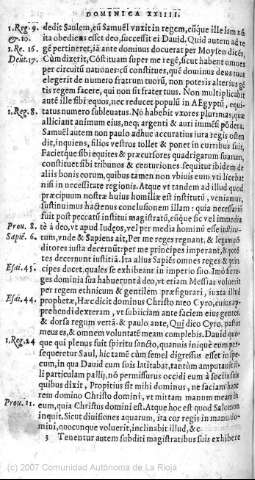 DOMINICA XXIIII.
1. Reg. 9. dedit Saulem, eū Samuel vnxit in regem, eúsque ille Iam tā
ita obediens esset deo, successit ei David. Quid autem ad te
1. Re. 16. gē pertineret, iā ante dominus docuerat per Moysen dicēs,
Deut. 17. Cùm dixerit, Cōstituam super me regē, sicut habent omnes
per circuitū nationes: eū constitues, quē dominus deus tuus
elegerit de numero fratrum tuorū, non poteris alterius gē
tis regem facere, qui non sit frater tuus. Non multiplicabit
autē ille sibi equos, nec reducet populū in AEgyptū, equi-
1. Reg. 8. tatus numero subleuatus. Nō habebit vxores plurimas, quę
alliciant animum eius, neq; argenti & auri immēsi pōdera.
Samuel autem non paulò adhuc accuratius iura regis osten
dit, inquiens, filios vestros tollet & ponet in curribus suis,
Facietque sibi equites & præcursores quadrigarum suarum,
constituet sibi tribunos & centuriones
aliis bonis eorum, quibus tamen non vbiuis eum vti licebat
nisi in necessitate regionis. Atque vt tandem ad illud quod
præcipuum nostræ huius homiliæ est instituti, veniamus,
fuit post peccatū institui magistratū,
Prou. 8. tè à deo, vt apud Iudęos, vel per media hominū est consti-
Sapiē. 6. tum, vnde & Sapiens ait, Per me reges regnant, & legum cō-
ditores iusta decernūt: per me principes imperant, & potē
tes decernunt iustitiā. Ita alius Sapiēs omnes reges & prin
Esai. 45. cipes docet, quales se exhibeant in imperio suo.
ges dominis sua habuerunt à deo, vt etiam Messias voluerit
per regem ethnicum & gentilem præfigurari, iuxta illud
Esai. 44. prophetæ, Hæc dicit dominus Christo meo Cyro, cuius ap-
prehendi dexteram, vt subiiciam ante faciem eius gentes,
& dorsa regum vertā. & paulo ante, Qui dico Cyro, pastor
meus es, & omnem voluntatē meam complebis. David quo
1. Reg. 24 que qui plenus fuit spiritu sancto, quanuis iniquè eum per-
sequeretur Saul, hic tamē cùm semel digressus esset in spe-
cum, in qua David cum suis latitabat, tantùm amputauit il-
li particulam pallij, nō permissurus occidi eum à sociis suis
quibus dixit, Propitius sit mihi dominus, ne faciam hanc
rem domino Christo domini, vt mittam manum meam in
Prou. 21. eum, quia Christus domini est. Atque hoc est quod Salomon
inquit, Sicut diuisiones aquarum, ita cor regis in manu do-
mini, quocunque voluerit, inclinabit illud, &c.
3 Tenentur autem subditi magistratibus suis exhibere
(c) 2007 Comunidad Autónoma de La Rioja